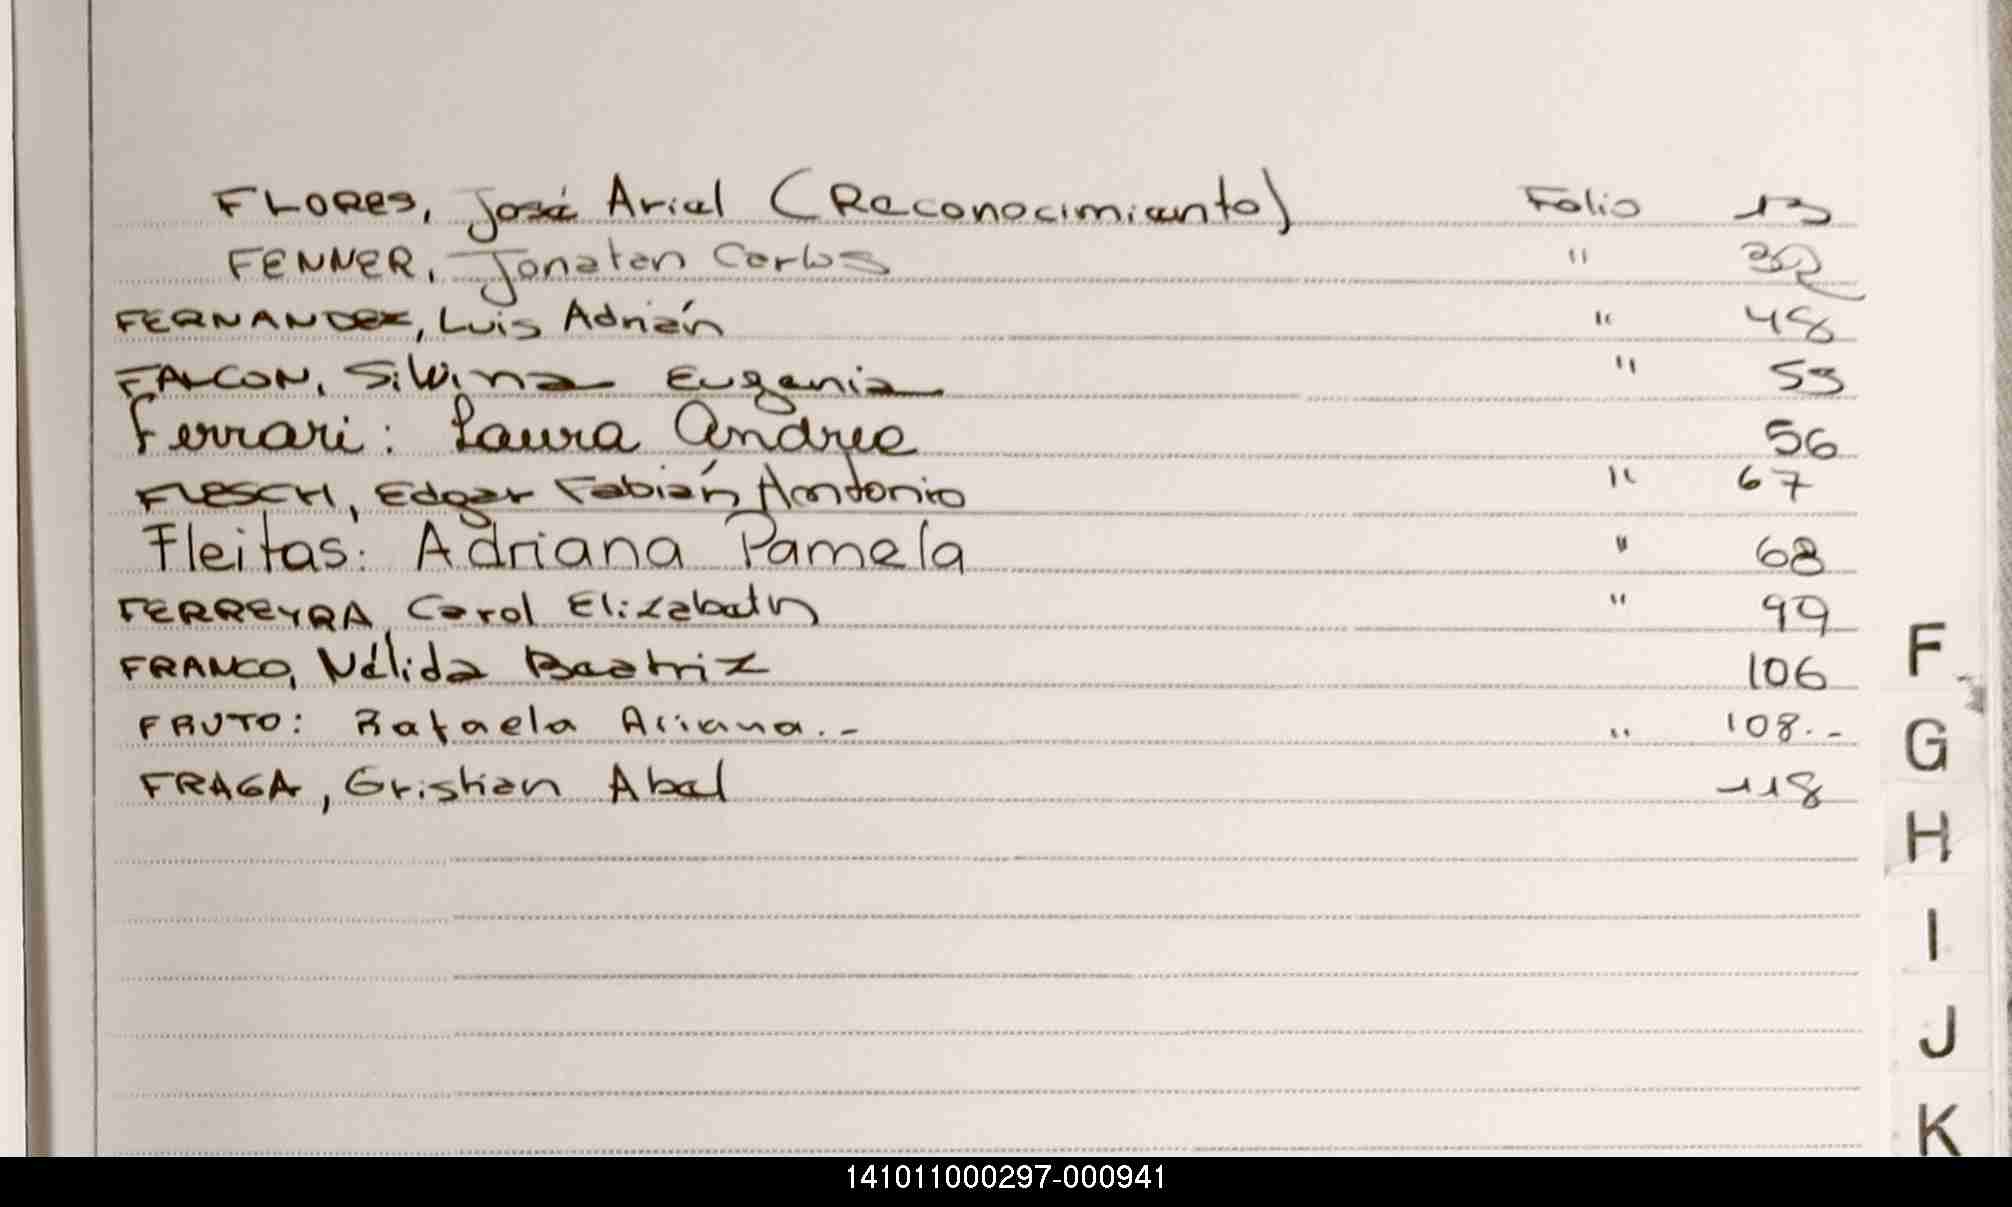 FLORES, José Ariel (Reconocimiento) Folio 13
FENNER, Jonatan Carlos " 32
FERNANDEZ, Luis Adrián " 48
FALCON, Silvina Eugenia " 53
Ferrari: Laura Andrea 56
FLESCH, Edgar Fabián Antonio " 67
Fleitas: Adriana Pamela " 68
FERREYRA, Carol Elizabeth " 99
FRANCO, Nélida Beatriz 106
FRUTO: Rafaela Ariana.- " 108.-
FRAGA, Cristian Abel 118
F
G
H
I
J
K
141011000297-000941